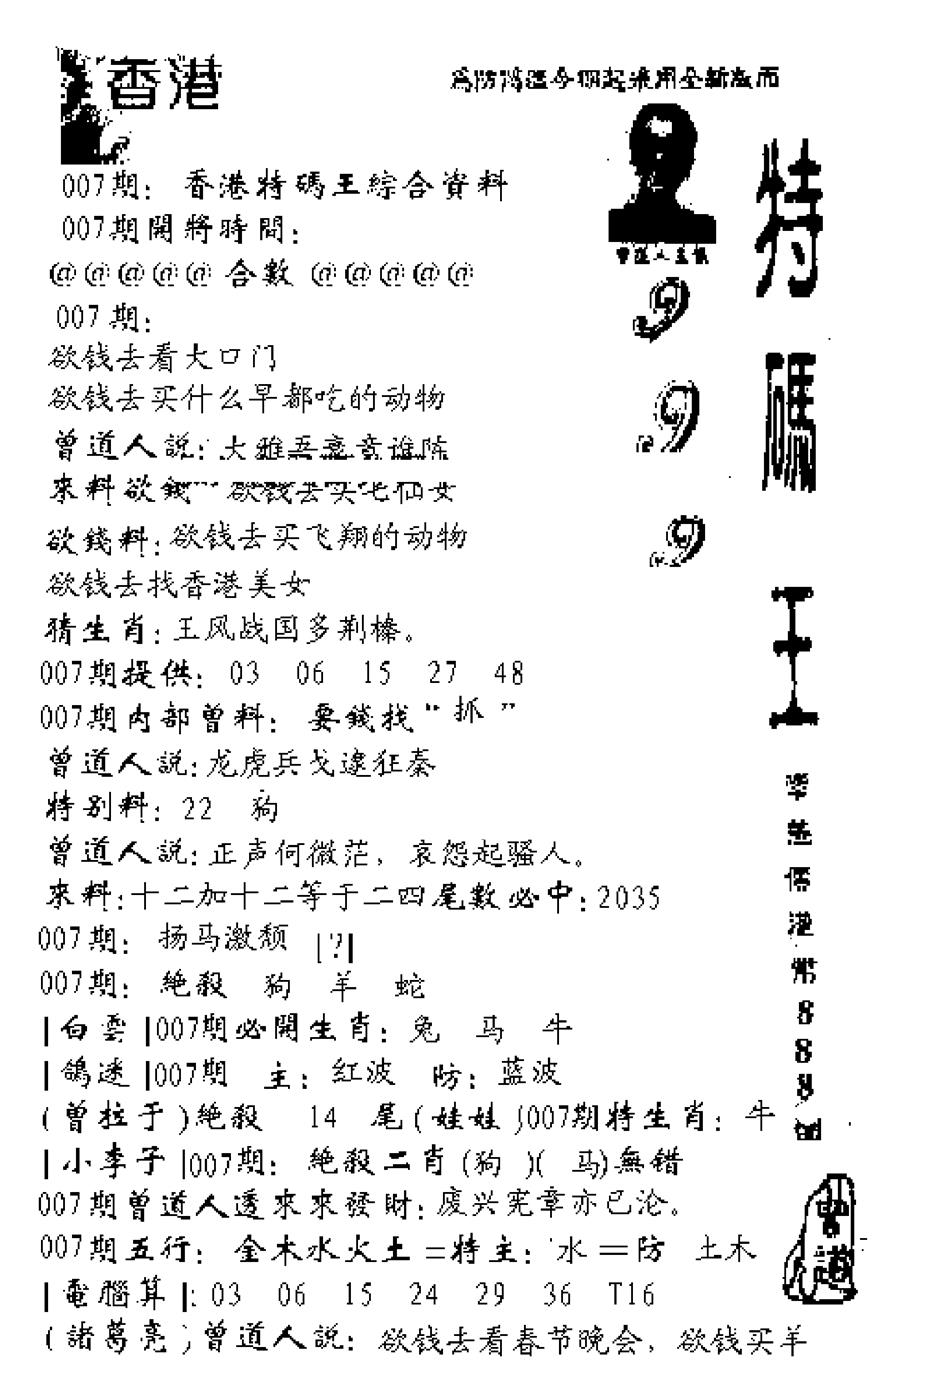 香港
007期：香港特碼王綜合資料
007期開將時間：
@@@@@合數@@@@@
007期：
欲钱去看大口门
欲钱去买什么早都吃的动物
曾道人説：大雅吾衰竟谁陈
來料欲錢 欲钱去买七仙女
欲錢料：欲钱去买飞翔的动物
欲钱去找香港美女
猜生肖：王风战国多荆榛。
007期提供：03 06 15 27 48
007期内部曾料：要錢找“抓”
曾道人説：龙虎兵戈逮狂秦
特别料：22 狗
曾道人説：正声何微茫，哀怨起骚人。
來料：十二加十二等于二四尾數必中：2035
007期：扬马激颓 |?|
007期：絶殺 狗 羊 蛇
|白雲|007期必開生肖：兔 马 牛
|鴿迷|007期 主：红波 防：蓝波
(曾拉于)絶殺 14 尾(娃娃)007期特生肖：牛
|小李子|007期：絶殺二肖(狗)(马)無错
007期曾道人透來來發財：废兴宪章亦已沦。
007期五行：金木水火土=特主：水=防 土木
|電腦算|：03 06 15 24 29 36 T16
(諸葛亮)曾道人説：欲钱去看春节晚会，欲钱买羊
曾道人主講
9
9
9
特碼王
港幣888
曾道